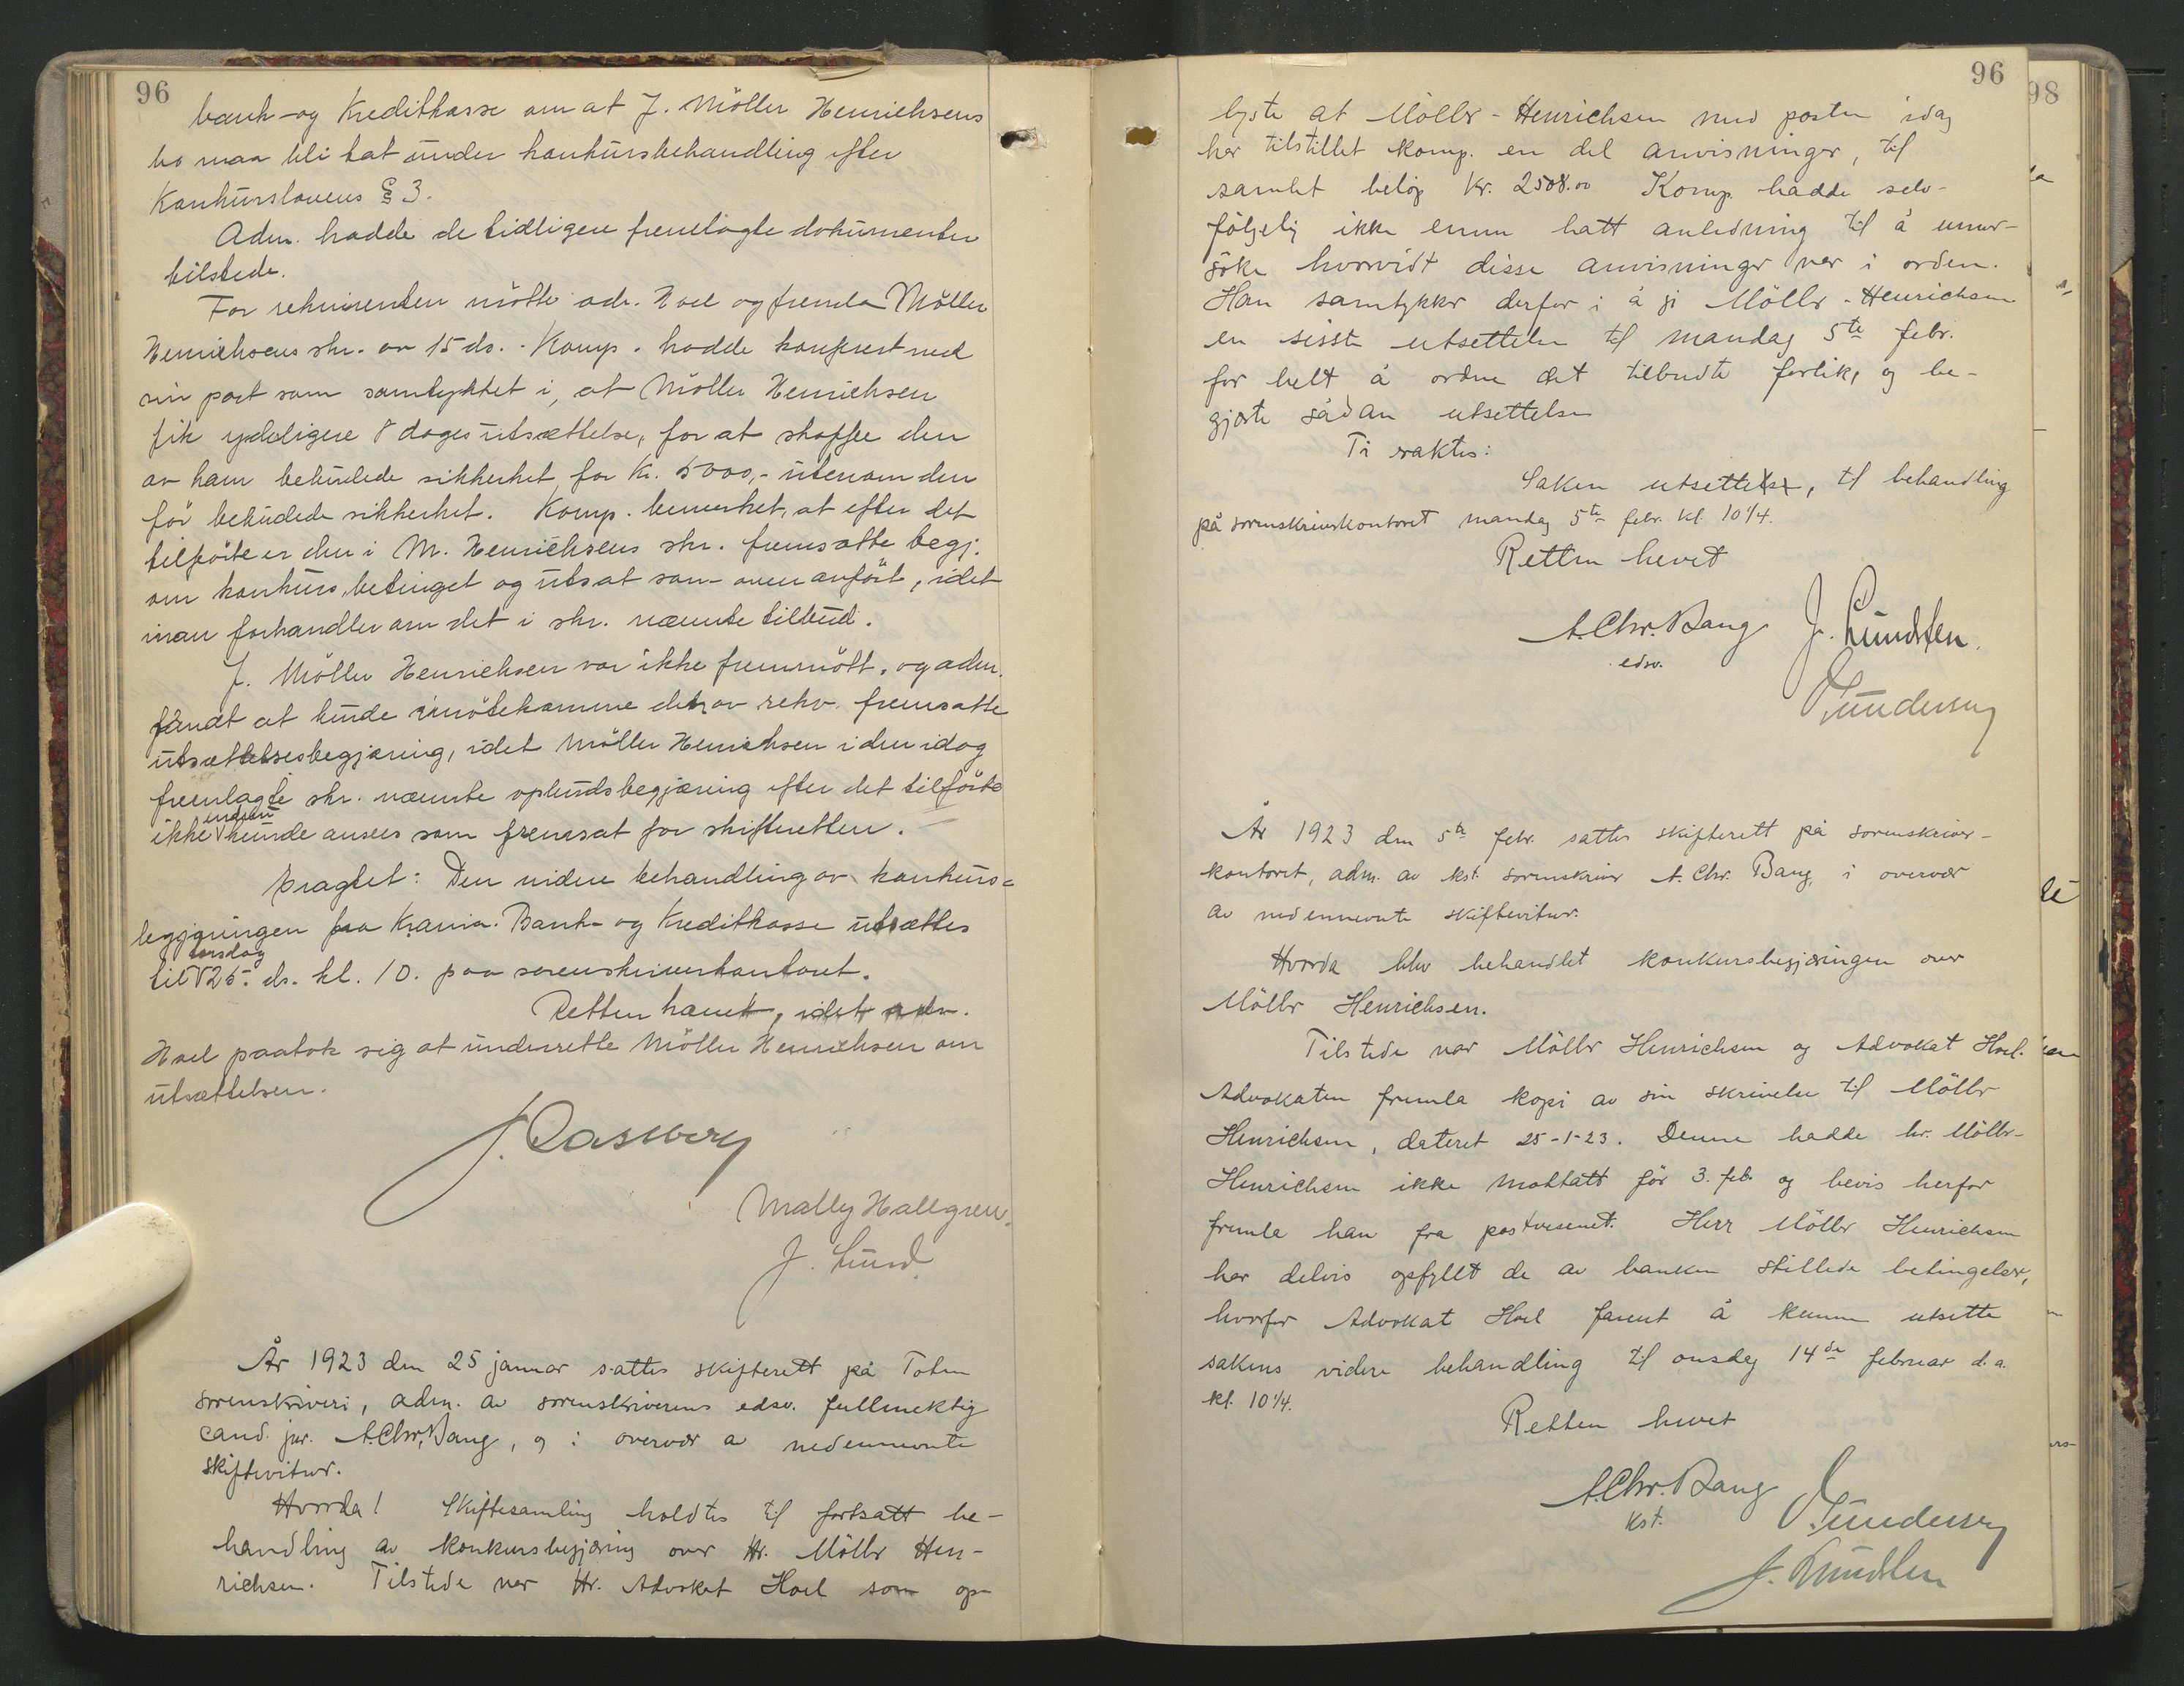 96
bank- og Kreditkasse om at J. Möller Henrichsens
bo maa bli tat under konkursbehandling efter
Konkurslovens § 3.
Adm. hadde de tidligere fremlagte dokumenter
tilstede.
For rekvirenten mötte adv. Hoel og fremla Möller
Henrichsens skr. av 15 ds. - Komp. hadde konferert med
sin part som samtyktet i, at Möller Henrichsen
fik yderligere 8 dages utsættelse, for at skaffe den
av ham bebudede sikkerhet for kr. 5000,- utenom den
för bebudede sikkerhet. Komp. bemerket, at efter det
tilförte er den i M. Henrichsens skr. fremsatte begj.
om konkurs, betinget og utsat som oven anfört, idet
man forhandler om det i skr. nævnte tilbud.
J. Möller Henrichsen var ikke fremmött, og adm.
fandt at kunde imötekomme den av rekv. fremsatte
utsættelsesbegjæring, idet Möller Henrichsen i den idag
fremlagte skr. nævnte opbudsbegjæring efter det tilförte
ikke endnu kunde ansees som fremsat for skifteretten.
Eragtet: Den videre behandling av konkurs=
begjæringen fra Krania. Bank- og Kreditkasse utsættes
til torsdag 25. ds. kl. 10. paa sorenskriverkontoret.
Retten hævet, idet adv.
Hoel paatok sig at underrette Möller Henrichsen om
utsættelsen.
Mally Hallgren.
J. Lund
År 1923 den 25 januar sattes skifterett på Toten
sorenskriveri, adm. av sorenskriverens edsv. fullmektig
cand. jur. A. Chr. Bang, og i overvær av nedennevnte
skiftevitner.
Hvorda! Skiftesamling holdtes til fortsatt be-
handling av konkursbegjæring over Hr. Möller Hen-
richsen. Tilstede var Hr. Advokat Hoel som op-
96
98
lyste at Möller-Henrichsen med posten idag
har tilstillet komp. en del anvisninger, til
samlet beløp kr. 2508.00 Komp. hadde selv-
fölgelig ikke ennu hatt anledning til å unner-
söke hvorvidt disse anvisninger var i orden.
Han samtykker derfor i å gi Möller-Henrichsen
en sisste utsettelse til mandag 5te febr.
for helt å ordne det tilbudte forlik, og be-
gjærte sådan utsettelse
Ti eraktes:
Saken utsettes, til behandling
på sorenskriverkontoret mandag 5te febr. kl. 10 1/4.
Retten hevet
A. Chr. Bang J. Lundsten.
edsv.
Gundersen
År 1923 den 5te febr. sattes skifterett på sorenskriver-
kontoret, adm. av kst. sorenskriver A. Chr. Bang, i overvær
av nedennevnte skiftevitner.
Hvorda blev behandlet konkursbegjæringen over
Möller Henrichsen.
Tilstede var Möller Henrichsen og Advokat Hoel.
Advokaten fremla kopi av sin skrivelse til Möller
Henrichsen, dateret 25-1-23. Denne hadde hr. Möller-
Henrichsen ikke mottatt för 3. feb. og bevis herfor
fremla han fra postvesenet. Herr Möller Henrichsen
har delvis opfyllt de av banken stillede betingelser,
hvorfor Advokat Hoel fannt å kunne utsette
sakens videre behandling til onsdag 14de februar d.a.
kl. 10 1/4.
Retten hevet
A. Chr. Bang
kst.
Gundersen
J. Lundsten